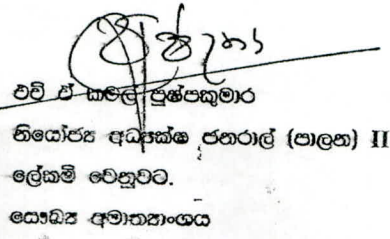 එච් ඒ කමල් පුෂ්පකුමාර
නියෝජ්‍ය අධ්‍යක්ෂ ජනරාල් (පාලන) II
ලේකම් වෙනුවට.
සෞඛ්‍ය අමාත්‍යාංශය